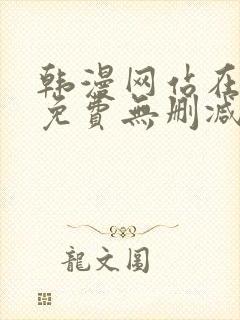 韩漫网站在
免費無删减
龍文圆